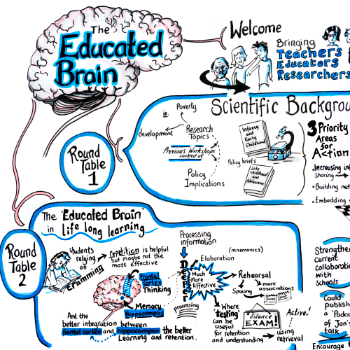 The
Educated
Brain
Welcome
Bringing
Teachers
Educators
Researchers
Scientific Backgrou
Round
Table
1
Poverty
Development
Research
Topics
Previous Workshops
context of
Policy
Implications
Policy briefs
Infancy and
Early Childhood
childhood and
adolescence
3 Priority
Areas
for
Action
Increasing
Sharing
• Building net
• Embedding
Round
Table
2
The Educated Brain
in life long learning
Students
relying on
Cramming
Repetition is helpful
but maybe not the
most effective
Frontal
Cortex
Thinking
Memory
Hippocampus
And the
better integration between
frontal cortex and hippocampus the better
Learning and retention.
Processing
information
Deeper
Processing
Much
more
effective
(mnemonics)
Elaboration
Rehearsal
more
associations
Where
testing
can be
useful
for retention
and understanding
Science
EXAM!
Active!
using
retrieval
Strengthen
current
collaboration
with
schools
Could
Publish
a 'Podca
of Jan's
talk
Encourage